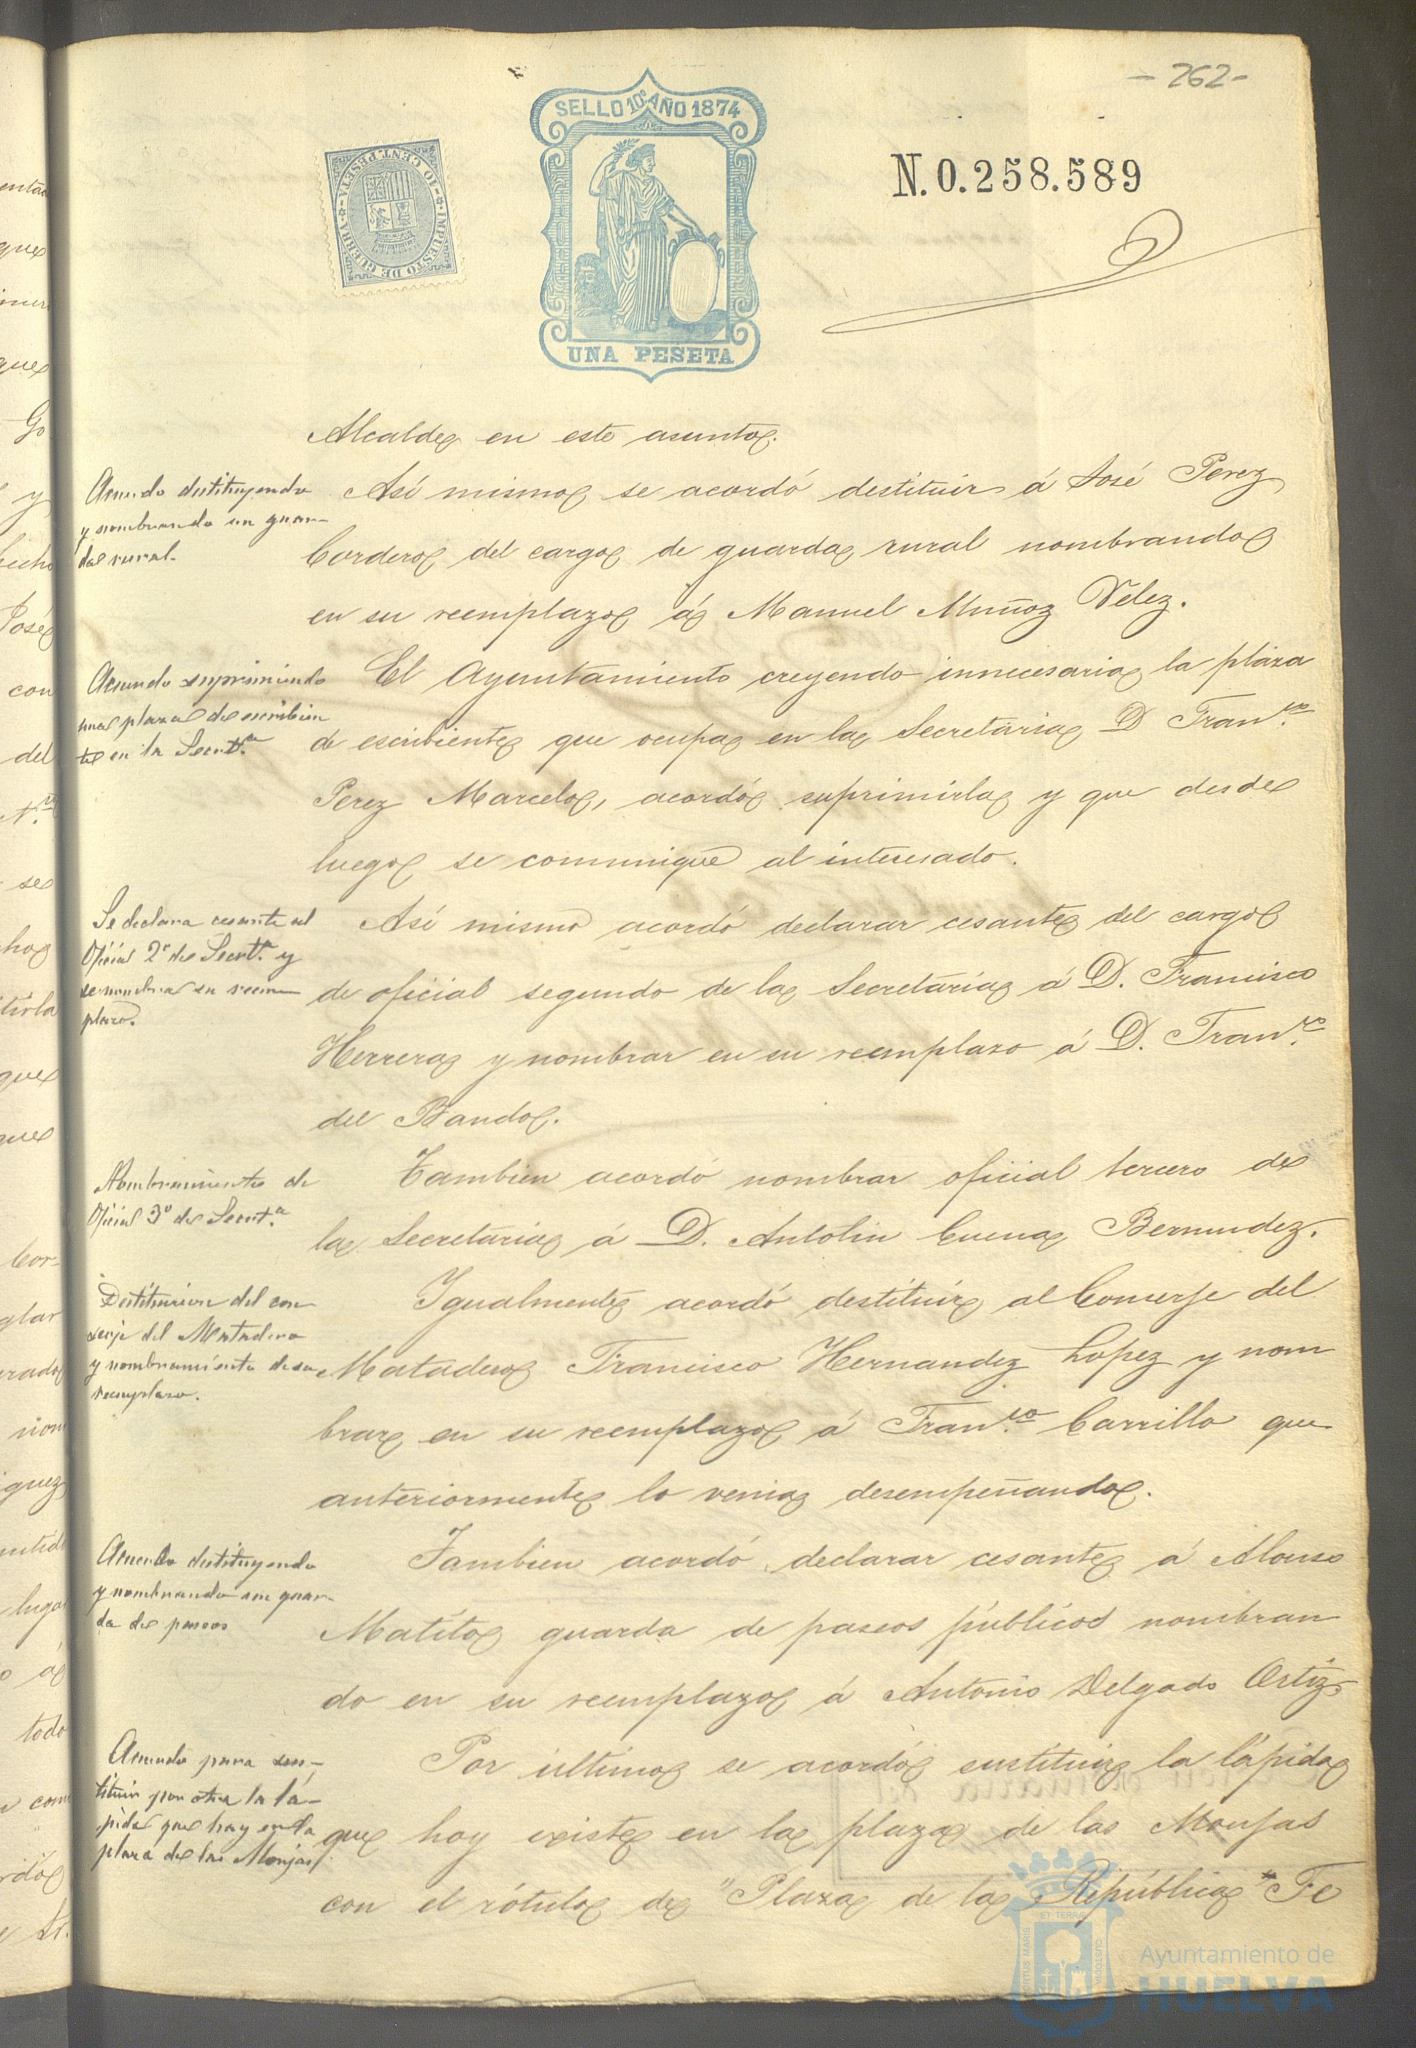 - 262 -
SELLO 10º AÑO 1874
10 CENT. PESETA
IMPUESTO DE GUERRA
N.0.258.589
UNA PESETA
Alcalde en este asunto.
Acuerdo destituyendo
y nombrando un guar-
da rural.
Así mismo se acordó destituir á José Perez
Cordero del cargo de guarda rural nombrando
en su reemplazo á Manuel Muñoz Velez.
Acuerdo suprimiendo
una plaza de escribien
te en la Secret.ª
El Ayuntamiento creyendo innecesaria la plaza
de escribiente que ocupa en la Secretaria D Fran.co
Perez Marcelo, acordó suprimirla y que desde
luego se comunique al interesado.
Se declara cesante al
Oficial 2º de Secret.ª y
se nombra su reem
plazo.
Así mismo acordó declarar cesante del cargo
de oficial segundo de la Secretaría á D. Francisco
Herrera y nombrar en su reemplazo á D. Fran.co
del Bando.
Nombramiento de
Oficial 3º de Secret.ª
Tambien acordó nombrar oficial tercero de
la Secretaria á D. Antolin Cuenca Bermudez.
Destitucion del con
serje del Matadero
y nombramiento de su
reemplazo.
Igualmente acordó destituir al Conserje del
Matadero Francisco Hernandez Lopez y nom
brar en su reemplazo á Fran.co Carrillo que
anteriormente lo venia desempeñando.
Acuerdo destituyendo
y nombrando un guar-
da de paseos
Tambien acordó declarar cesante á Alonso
Matito guarda de paseos públicos nombran
do en su reemplazo á Antonio Delgado Ortiz.
Acuerdo para sus-
tituir por otra la lá-
pida que hay en la
plaza de las Monjas.
Por último se acordó sustituir la lápida
que hoy existe en la plaza de las Monjas
con el rótulo de "Plaza de la República" Fe
Ayuntamiento de
HUELVA